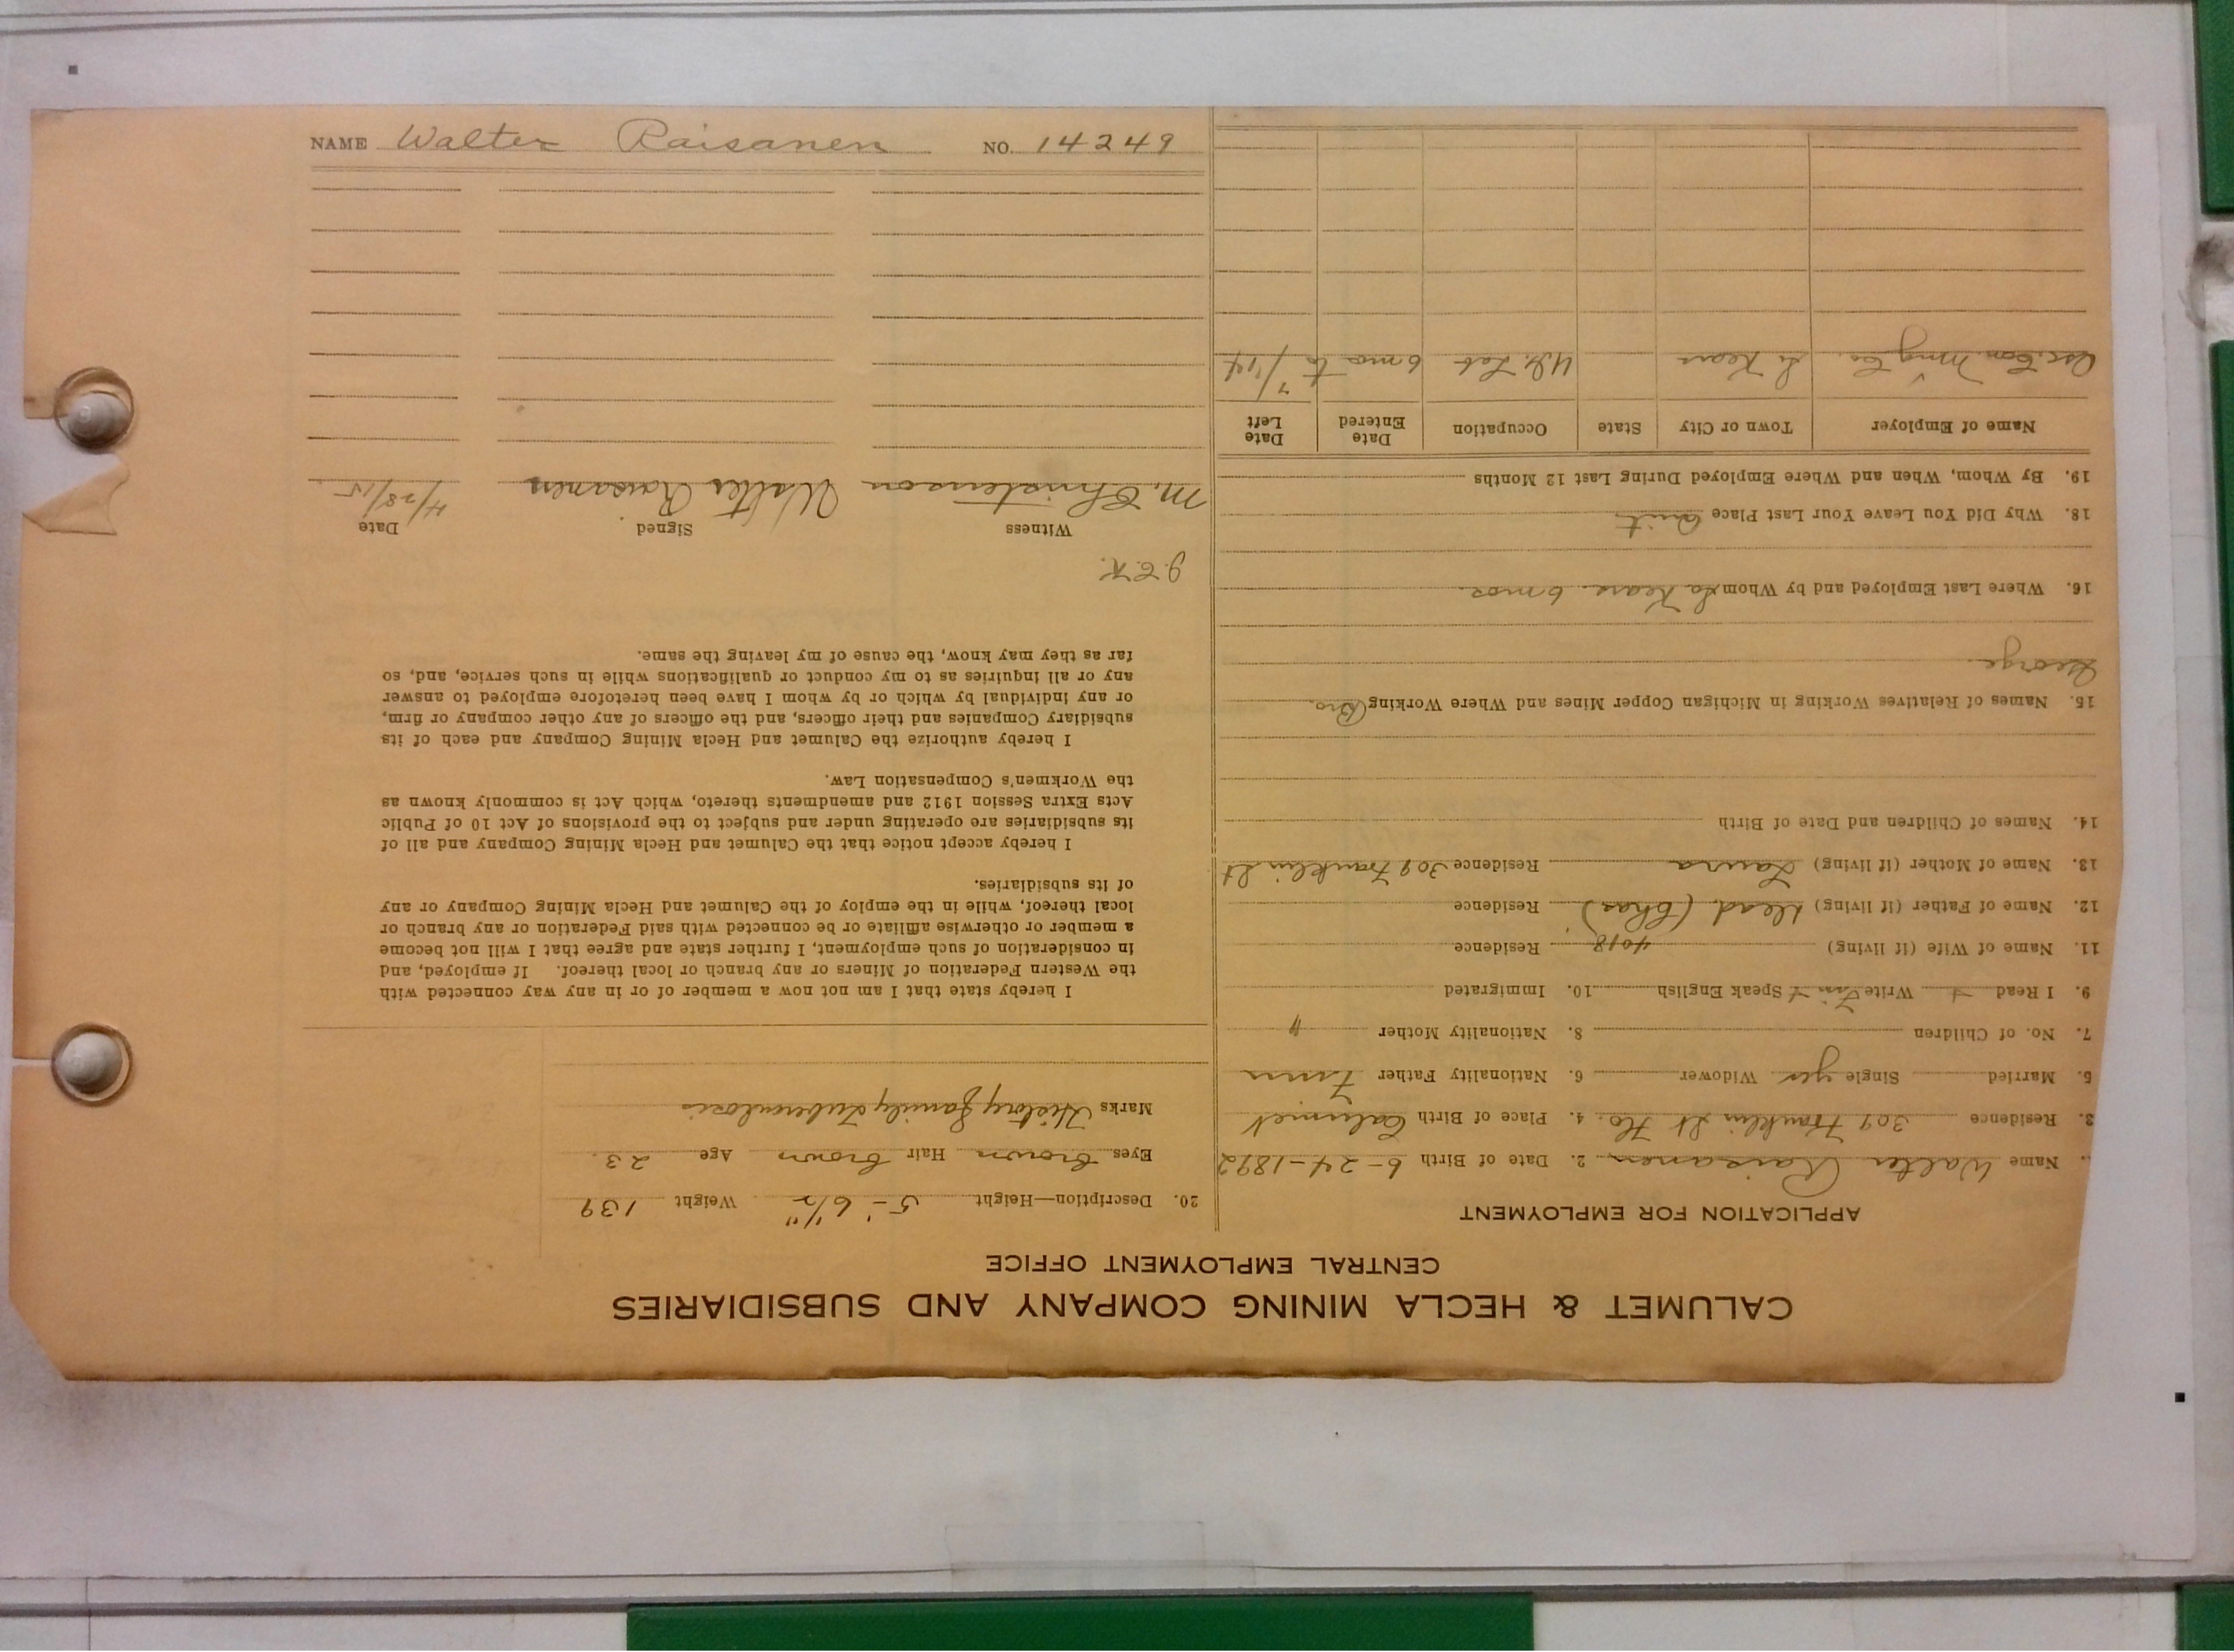 CALUMET & HECLA MINING COMPANY AND SUBSIDIARIES
CENTRAL EMPLOYMENT OFFICE
APPLICATION FOR EMPLOYMENT
Name Walter Raisanen 2. Date of Birth 6-24-1892
3. Residence 309 Franklin St Ho. 4. Place of Birth Calumet
5. Married Single yes Widower 6. Nationality Father Finn
7. No. of Children 8. Nationality Mother "
9. I Read + Write Finn + Speak English 10. Immigrated
11. Name of Wife (if living) 4018 Residence
12. Name of Father (if living) Dead (Chas) Residence
13. Name of Mother (if living) Laura Residence 309 Franklin St
14. Names of Children and Date of Birth
15. Names of Relatives Working in Michigan Copper Mines and Where Working Bro.
George
16. Where Last Employed and by Whom So Kears. 6 mos.
18. Why Did You Leave Your Last Place Quit
19. By Whom, When and Where Employed During Last 12 Months
Name of Employer Town or City State Occupation Date Entered Date Left
Osc. Con. Min'g Co. So Kears U.G. Lab 6 mo to 7/14
20. Description—Height 5'-6 1/2" Weight 139
Eyes brown Hair brown Age 23.
Marks History family tuberculosis
I hereby state that I am not now a member of or in any way connected with
the Western Federation of Miners or any branch or local thereof. If employed, and
in consideration of such employment, I further state and agree that I will not become
a member or otherwise affiliate or be connected with said Federation or any branch or
local thereof, while in the employ of the Calumet and Hecla Mining Company or any
of its subsidiaries.
I hereby accept notice that the Calumet and Hecla Mining Company and all of
its subsidiaries are operating under and subject to the provisions of Act 10 of Public
Acts Extra Session 1912 and amendments thereto, which Act is commonly known as
the Workmen's Compensation Law.
I hereby authorize the Calumet and Hecla Mining Company and each of its
subsidiary Companies and their officers, and the officers of any other company or firm,
or any individual by which or by whom I have been heretofore employed to answer
any or all inquiries as to my conduct or qualifications while in such service, and, so
far as they may know, the cause of my leaving the same.
J.E.K.
Witness Signed Date
M. Christenson Walter Raisanen 4/28/15
NAME Walter Raisanen NO. 14249